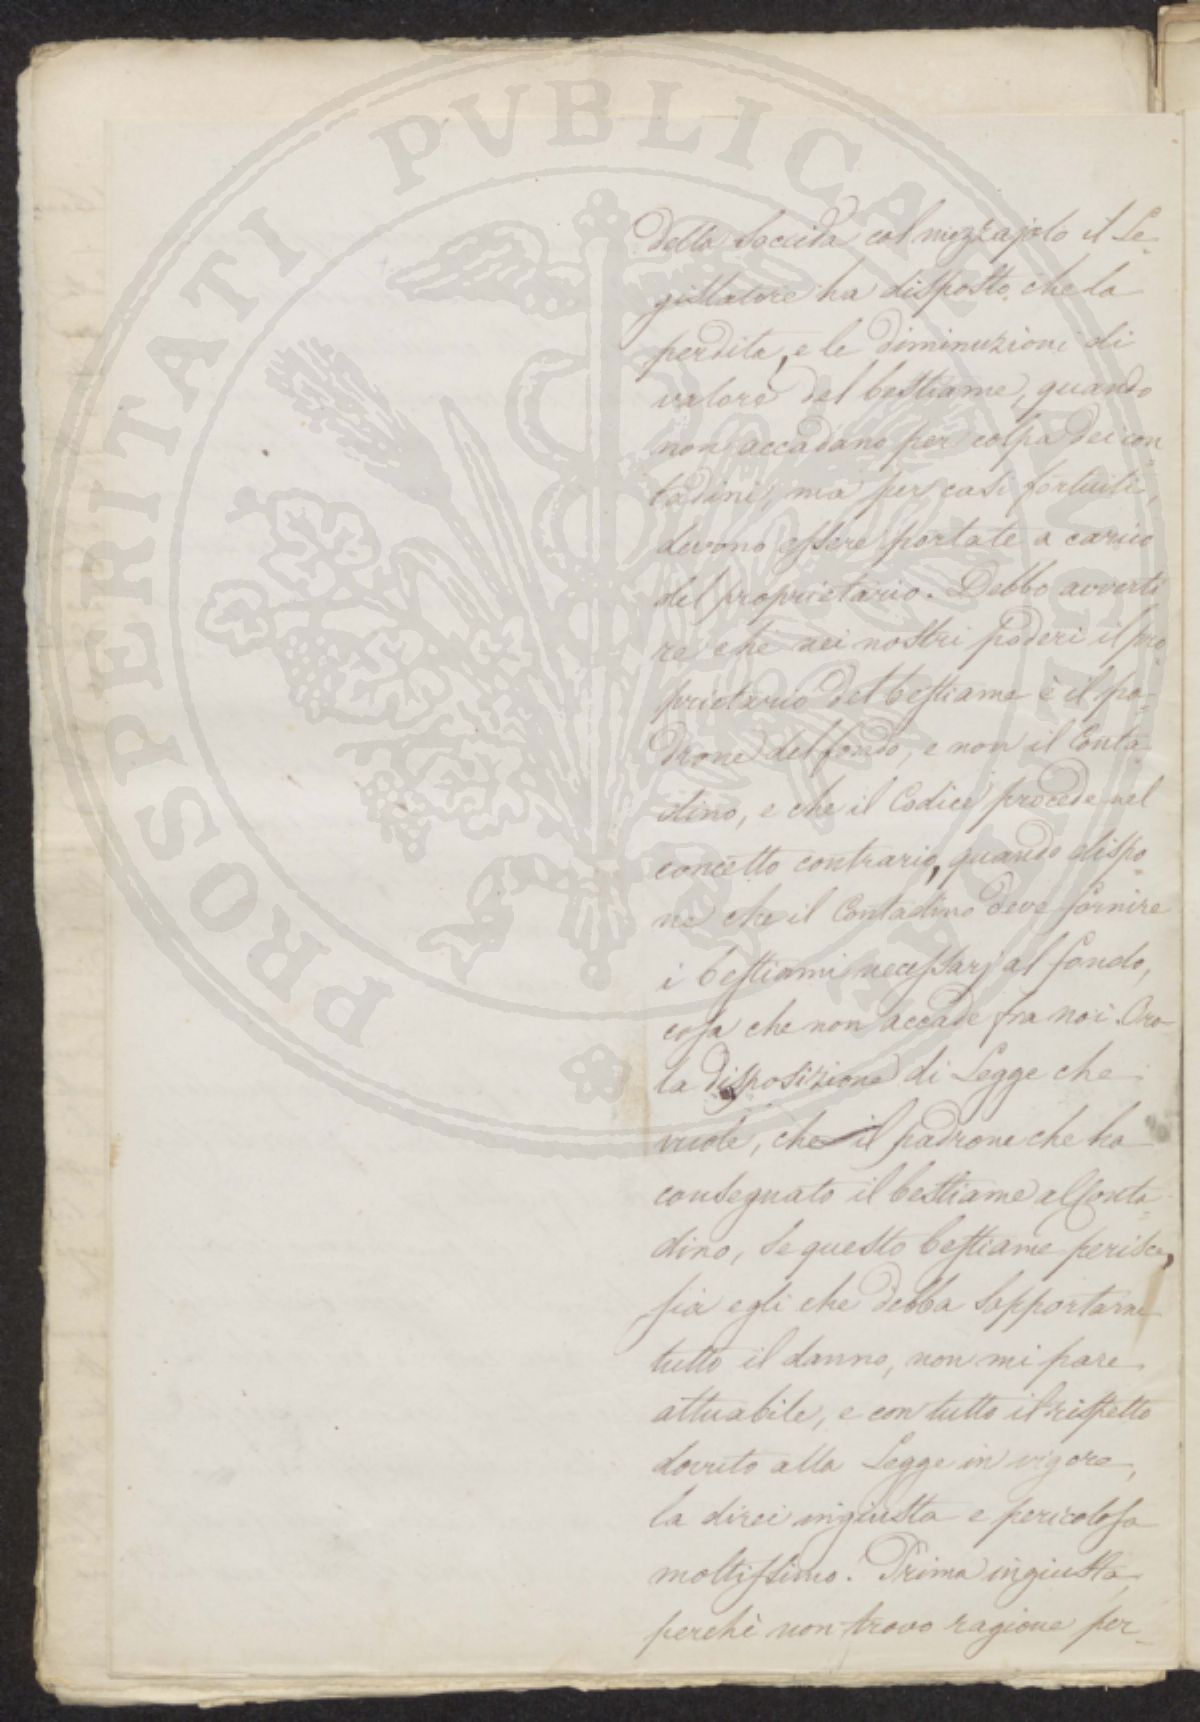 PROSPERITATI PVBLICAE AVGENDAE
della Soccida col mezzajolo il Le-
gislatore ha disposto che la
perdita, e le diminuzioni di
valore del bestiame, quando
non accadano per colpa dei con-
tadini, ma per casi fortuiti,
devono essere portate a carico
del proprietario. Debbo avverti
re che nei nostri poderi il pro-
prietario del bestiame è il pa-
drone del fondo, e non il Conta-
dino, e che il Codice procede nel
concetto contrario, quando dispo-
ne che il Contadino deve fornire
i bestiami necessarj al fondo,
cosa che non accade fra noi. Ora
la disposizione di Legge che
vuole, che il padrone che ha
consegnato il bestiame al Conta-
dino, se questo bestiame perisce,
sia egli che debba sopportarne
tutto il danno, non mi pare
attuabile, e con tutto il rispetto
dovuto alla Legge in vigore,
la direi ingiusta e pericolosa
moltissimo. Prima ingiusta,
perchè non trovo ragione per-